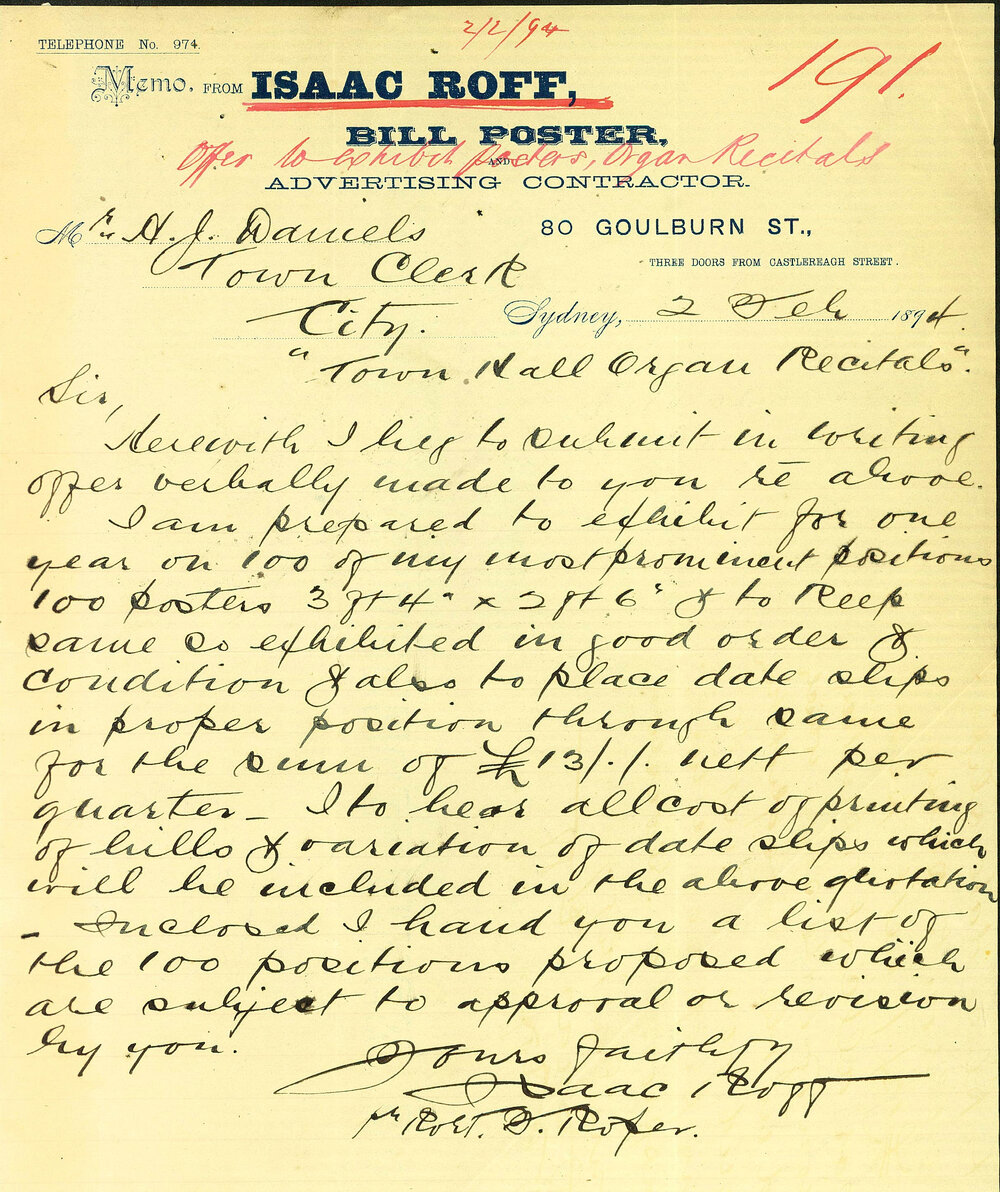 2/2/94
TELEPHONE No. 974.
191.
Memo. FROM ISAAC ROFF,
BILL POSTER,
Offer to exhibit posters, Organ Recitals
AND
ADVERTISING CONTRACTOR.
Mr. H. J. Daniels
80 GOULBURN ST.,
Town Clerk
THREE DOORS FROM CASTLEREAGH STREET.
City.
Sydney, 2 Feb 1894.
"Town Hall Organ Recitals".
Sir,
Herewith I beg to submit in writing
offer verbally made to you re above.
I am prepared to exhibit for one
year on 100 of my most prominent positions
100 posters 3 ft 4" x 2 ft 6" & to keep
same so exhibited in good order &
condition & also to place date slips
in proper position through same
for the sum of £13/./. nett per
quarter _ I to bear all cost of printing
of bills & variation of date slips which
will be included in the above quotation
_ Inclosed I hand you a list of
the 100 positions proposed which
are subject to approval or revision
by you.
Yours faithfy
Isaac Roff
pr Robt. D. Roper.